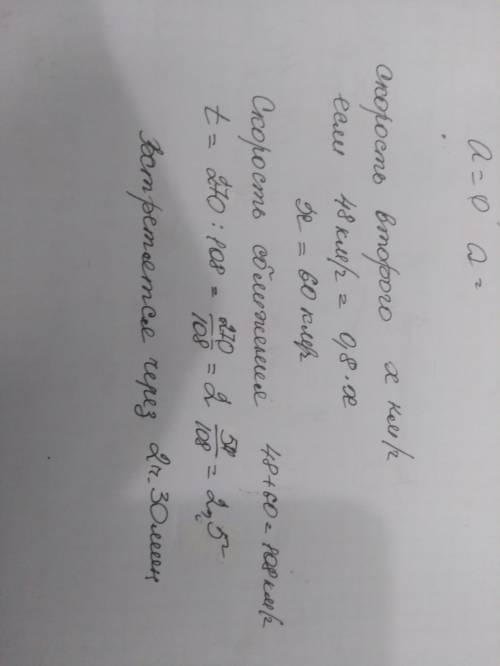 a = 0 a =
скорость второго x км/г
если 48 км/г = 0,8·x
x = 60 км/г
Скорость сближения 48+60=108 км/г
t = 270 : 108 = 270/108 = 2 54/108 = 2,5
Встретятся через 2ч. 30 мин